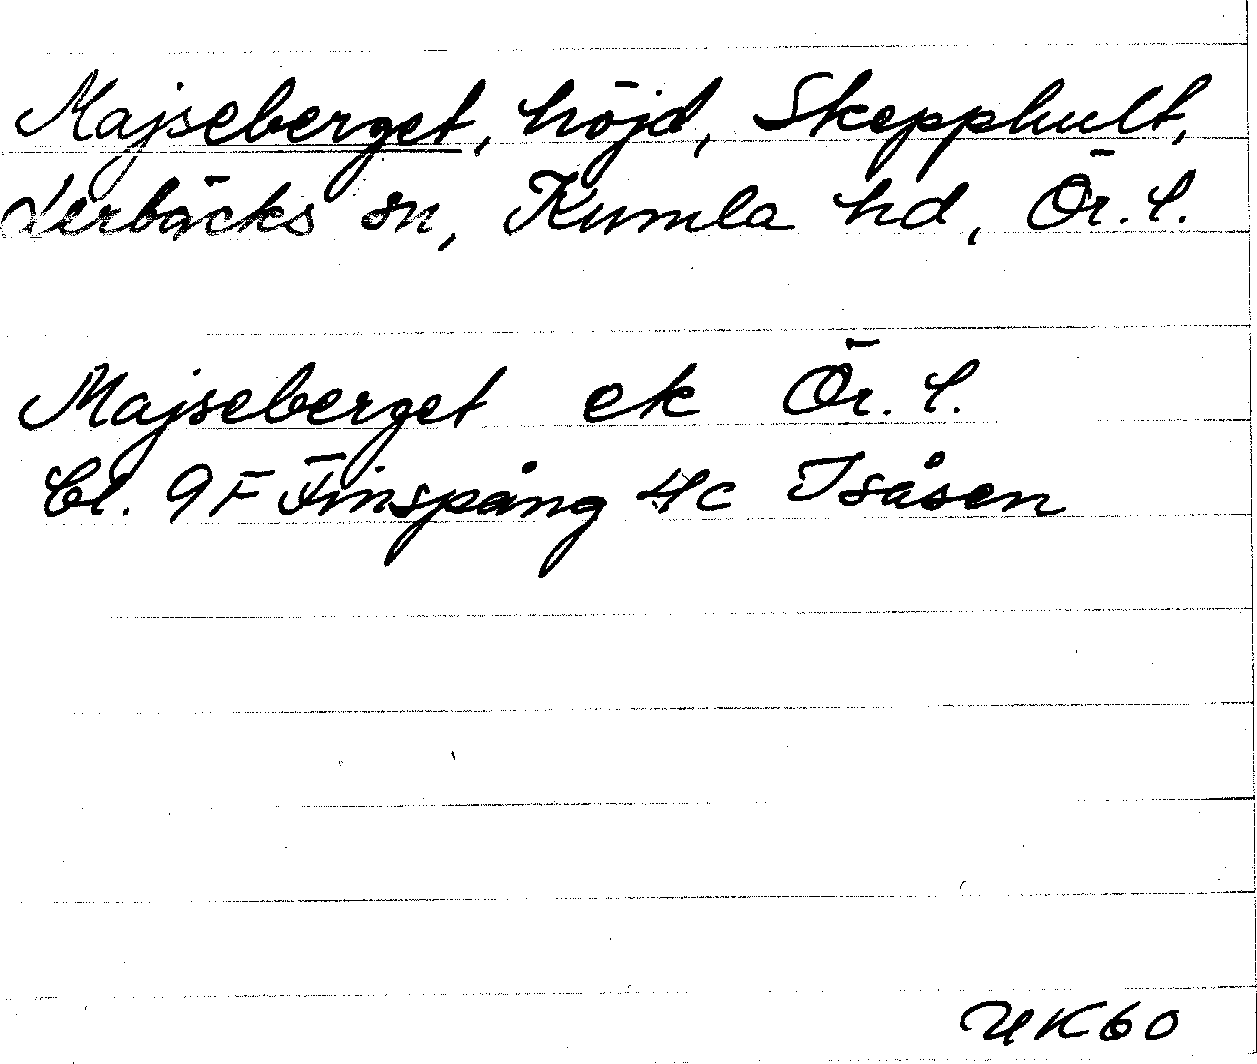 Majseberget, höjd, Skepphult,
Lerbäcks sn, Kumla hd, Ör. l.
Majseberget ek Ör. l.
bl. 9F Finspång 4c Isåsen
UK60